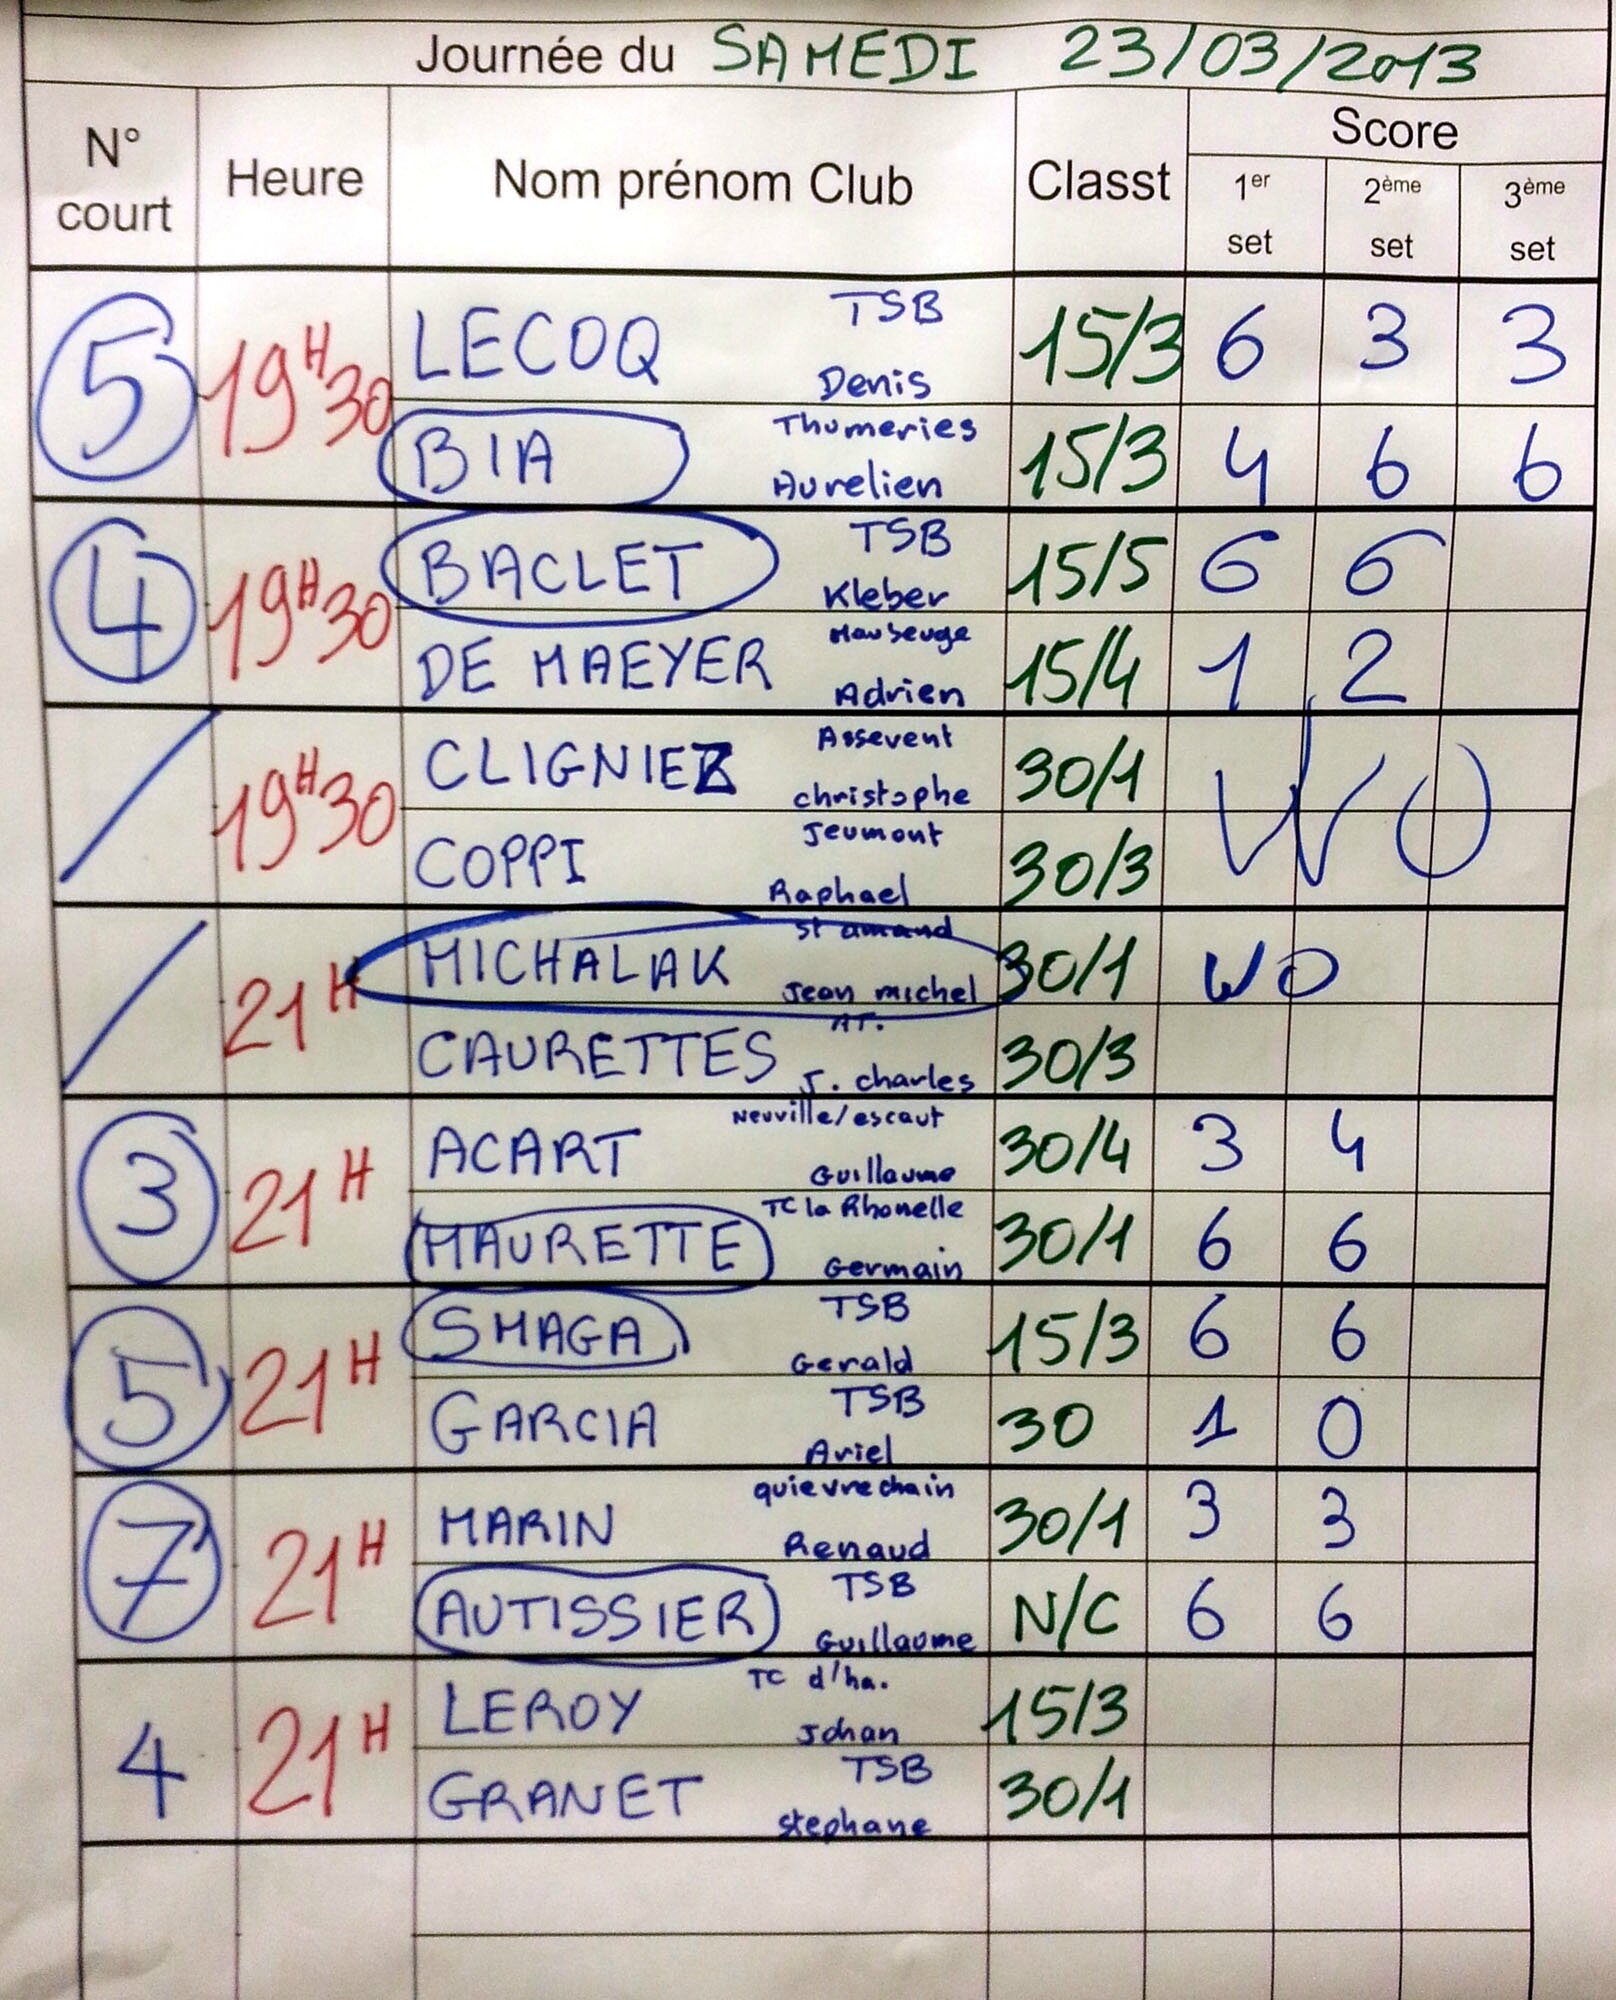 Journée du SAMEDI 23/03/2013
N° court Heure Nom prénom Club Classt Score
1er set 2ème set 3ème set
5 19H30 LECOQ TSB Denis 15/3 6 3 3
BIA Thumeries Aurelien 15/3 4 6 6
4 19H30 BACLET TSB Kleber 15/5 6 6
DE MAEYER Maubeuge Adrien 15/4 1 2
/ 19H30 CLIGNIEZ Assevent christophe 30/1 WO
COPPI Jeumont Raphael 30/3
/ 21H MICHALAK st amand Jean michel 30/1 WO
CAURETTES J. charles 30/3
3 21H ACART Neuville/escaut Guillaume 30/4 3 4
MAURETTE TC la Rhonelle Germain 30/1 6 6
5 21H SMAGA TSB Gerald 15/3 6 6
GARCIA TSB Ariel 30 1 0
7 21H MARIN quievrechain Renaud 30/1 3 3
AUTISSIER TSB Guillaume N/C 6 6
4 21H LEROY TC d'ha. Johan 15/3
GRANET TSB stephane 30/1